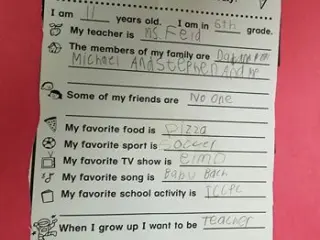 I am 11 years old. I am in 6th grade.
My teacher is ms. Feid
The members of my family are
Michael And Stephen And me
Some of my friends are No one
My favorite food is Pizza
My favorite sport is Soccer
My favorite TV show is elmo
My favorite song is Baby Bach
My favorite school activity is
When I grow up I want to be Teacher